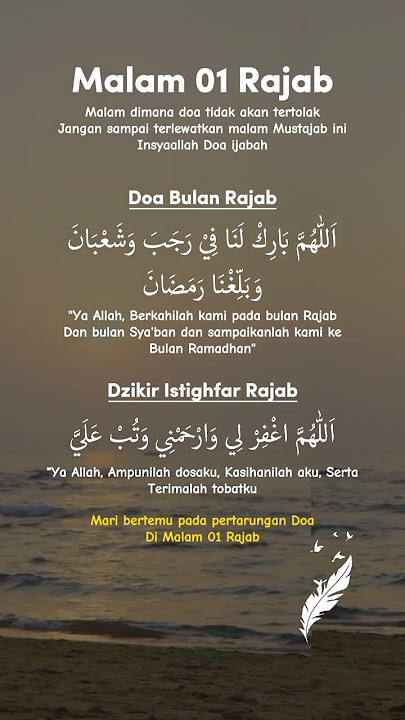 Malam 01 Rajab
Malam dimana doa tidak akan tertolak
Jangan sampai terlewatkan malam Mustajab ini
Insyaallah Doa ijabah
Doa Bulan Rajab
اَللّٰهُمَّ بَارِكْ لَنَا فِيْ رَجَبَ وَشَعْبَانَ
وَبَلِّغْنَا رَمَضَانَ
"Ya Allah, Berkahilah kami pada bulan Rajab
Dan bulan Sya'ban dan sampaikanlah kami ke
Bulan Ramadhan"
Dzikir Istighfar Rajab
اَللّٰهُمَّ اغْفِرْ لِي وَارْحَمْنِي وَتُبْ عَلَيَّ
"Ya Allah, Ampunilah dosaku, Kasihanilah aku, Serta
Terimalah tobatku
Mari bertemu pada pertarungan Doa
Di Malam 01 Rajab